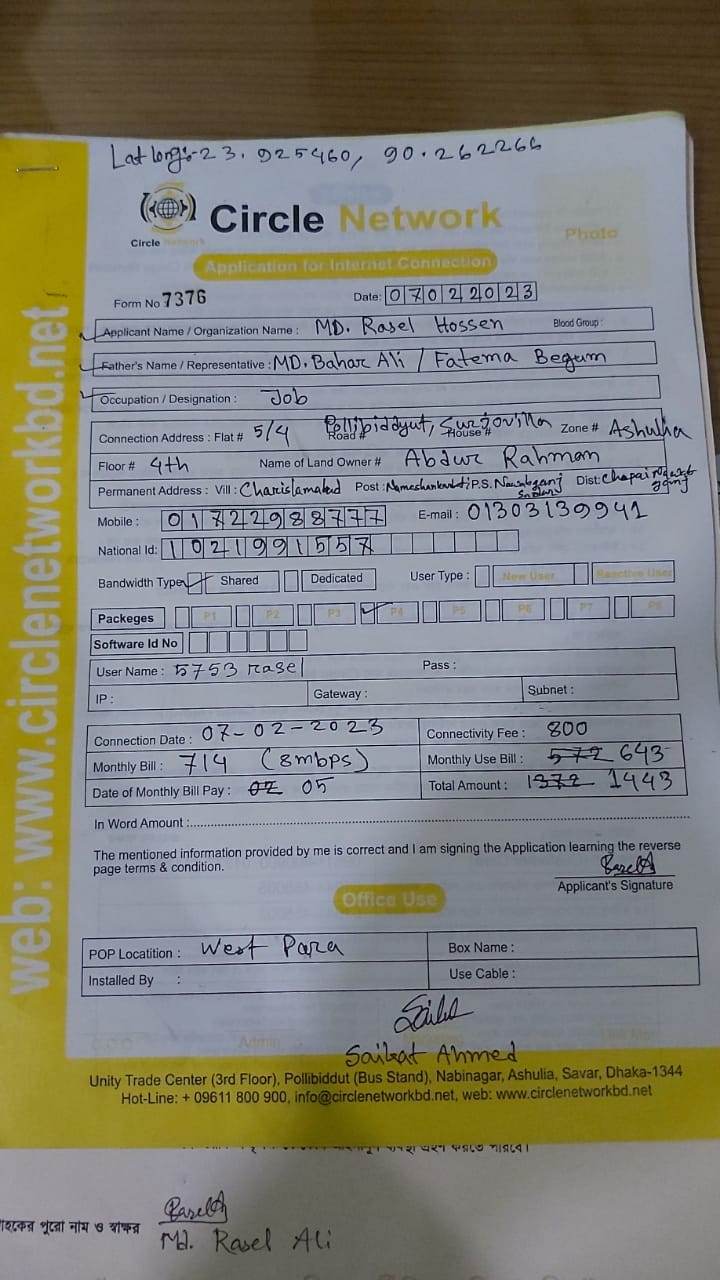 Lat long:-23.925460, 90.262266
Circle Network
Circle Network
Photo
Application for Internet Connection
Form No 7376 Date: 07022023
Applicant Name / Organization Name : MD. Rasel Hossen Blood Group :
Father's Name / Representative : MD. Bahar Ali / Fatema Begum
Occupation / Designation : Job
Connection Address : Flat # 5/4 Road # Pollibiddyut, House # Zone # Ashulia
Floor # 4th Name of Land Owner # Abdur Rahman
Permanent Address : Vill : Post : P.S. Dist:
Mobile : 01722988777 E-mail : 01303139941
National Id: 1021991557
Bandwidth Type Shared Dedicated User Type : New User Reactive User
Packeges P1 P2 P3 P4 P5 P6 P7 P8
Software Id No
User Name : 5753 rasel Pass :
IP : Gateway : Subnet :
Connection Date : 07-02-2023 Connectivity Fee : 800
Monthly Bill : 714 (8mbps) Monthly Use Bill : 572 643
Date of Monthly Bill Pay : 02 05 Total Amount : 1372 1443
In Word Amount :
The mentioned information provided by me is correct and I am signing the Application learning the reverse
page terms & condition.
Applicant's Signature
Office Use
POP Locatition : West Para Box Name :
Installed By : Use Cable :
Admin
Saikat Ahmed
Unity Trade Center (3rd Floor), Pollibiddut (Bus Stand), Nabinagar, Ashulia, Savar, Dhaka-1344
Hot-Line: + 09611 800 900, info@circlenetworkbd.net, web: www.circlenetworkbd.net
web: www.circlenetworkbd.net
পুরো নাম ও স্বাক্ষর
Md. Rasel Ali